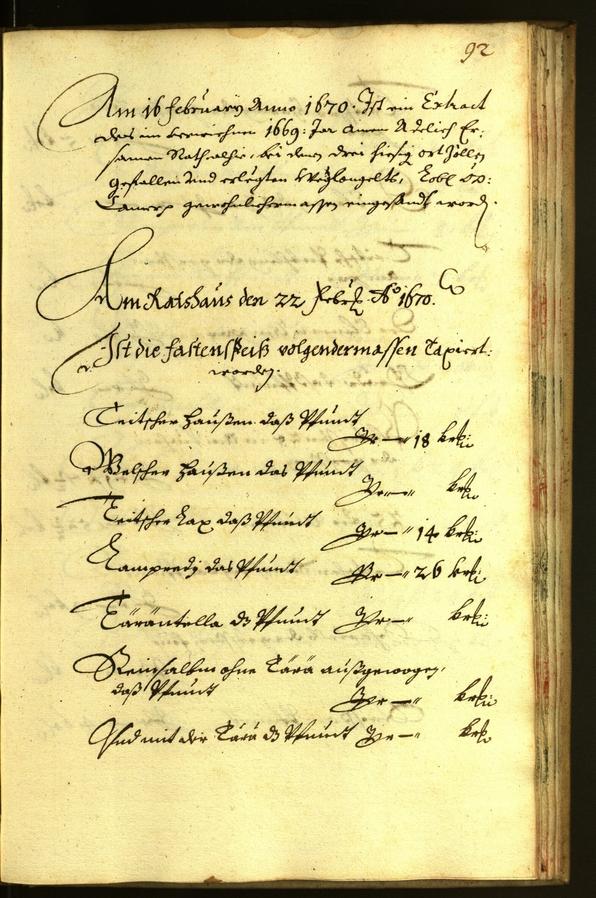 92
Am 16 februarÿ Anno 1670. Ist ein Extract
des im verwichnen 1669: Jar Einem Adelich Er:
samen Rath alhie, bei denen drei hiesig ort Zöllen
gefallen und erlegten Weglongelts, Lobl: O:Ö:
Camer gewohnlichermassen eingesendt worden.
Am Rathaus den 22 Febr: Aº 1670.
Ist die fastenspeiß volgendermassen Taxiert:
worden.
Teitscher Haußen daß Pfundt
Per — 18 krz:
Welscher Haußen das Pfundt
Per — krz:
Teitscher Lax daß Pfundt Per — 14 krz:
Lampredj das Pfundt Per — 26 krz:
Tarantella dz Pfundt Per — krz:
Reinsalbm ohne Tara außgewogen,
daß Pfundt
Per — krz:
Und mit der Tara dz Pfundt Per — krz: